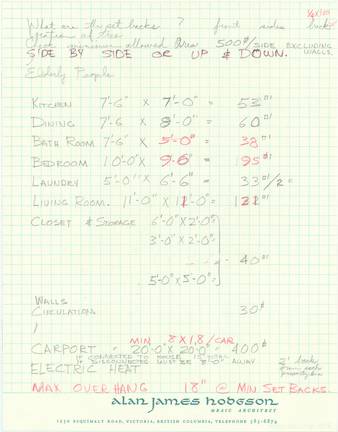 What are the set backs ? front sides back
location of tree
500 ▱/SIDE EXCLUDING WALLS.
SIDE BY SIDE OR UP & DOWN.
Elderly People
KITCHEN 7'-6" X 7'-0" = 53
DINING 7'-6 X 8'-0" = 60
BATH ROOM 7'-6" X 5'-0" = 38
BEDROOM 10'-0" X 9'-6" = 95
LAUNDRY 5'-0" X 6'-6" = 33 1/2
LIVING ROOM. 11'-0" X 11'-0" = 121
CLOSET & STORAGE 6'-0" X 2'-0"
3'-0" X 2'-0"
40
5'-0" X 5'-0"
WALLS
CIRCULATION 30
MIN 8 X 18 / CAR
CARPORT 20'-0" X 20'-0" 400
IF CONNECTED TO HOUSE
IF DISCONNECTED MUST BE 8'-0" AWAY
ELECTRIC HEAT
MAX OVERHANG 18" @ MIN SET BACKS.
alan james hodgson
MRAIC ARCHITECT
1250 ESQUIMALT ROAD, VICTORIA, BRITISH COLUMBIA, TELEPHONE 385-6879